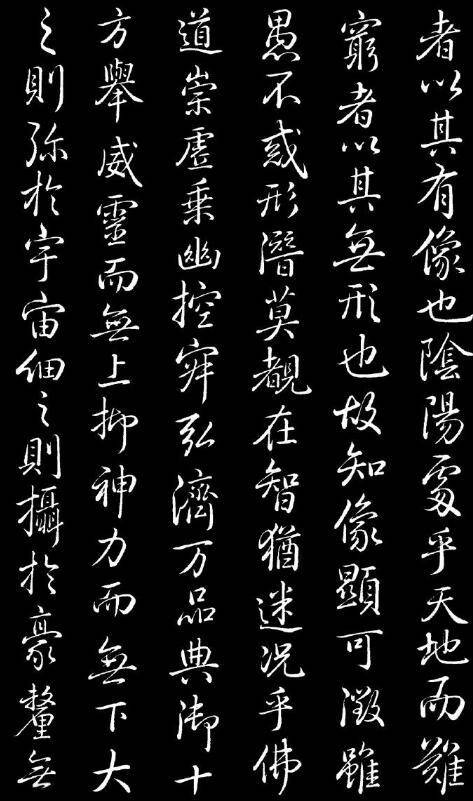 者以其有像也陰陽處乎天地而難
窮者以其無形也故知像顯可徵雖
愚不惑形潛莫覩在智猶迷況乎佛
道崇虛乗幽控寂弘濟万品典御十
方舉威靈而無上抑神力而無下大
之則弥於宇宙細之則攝於豪釐無